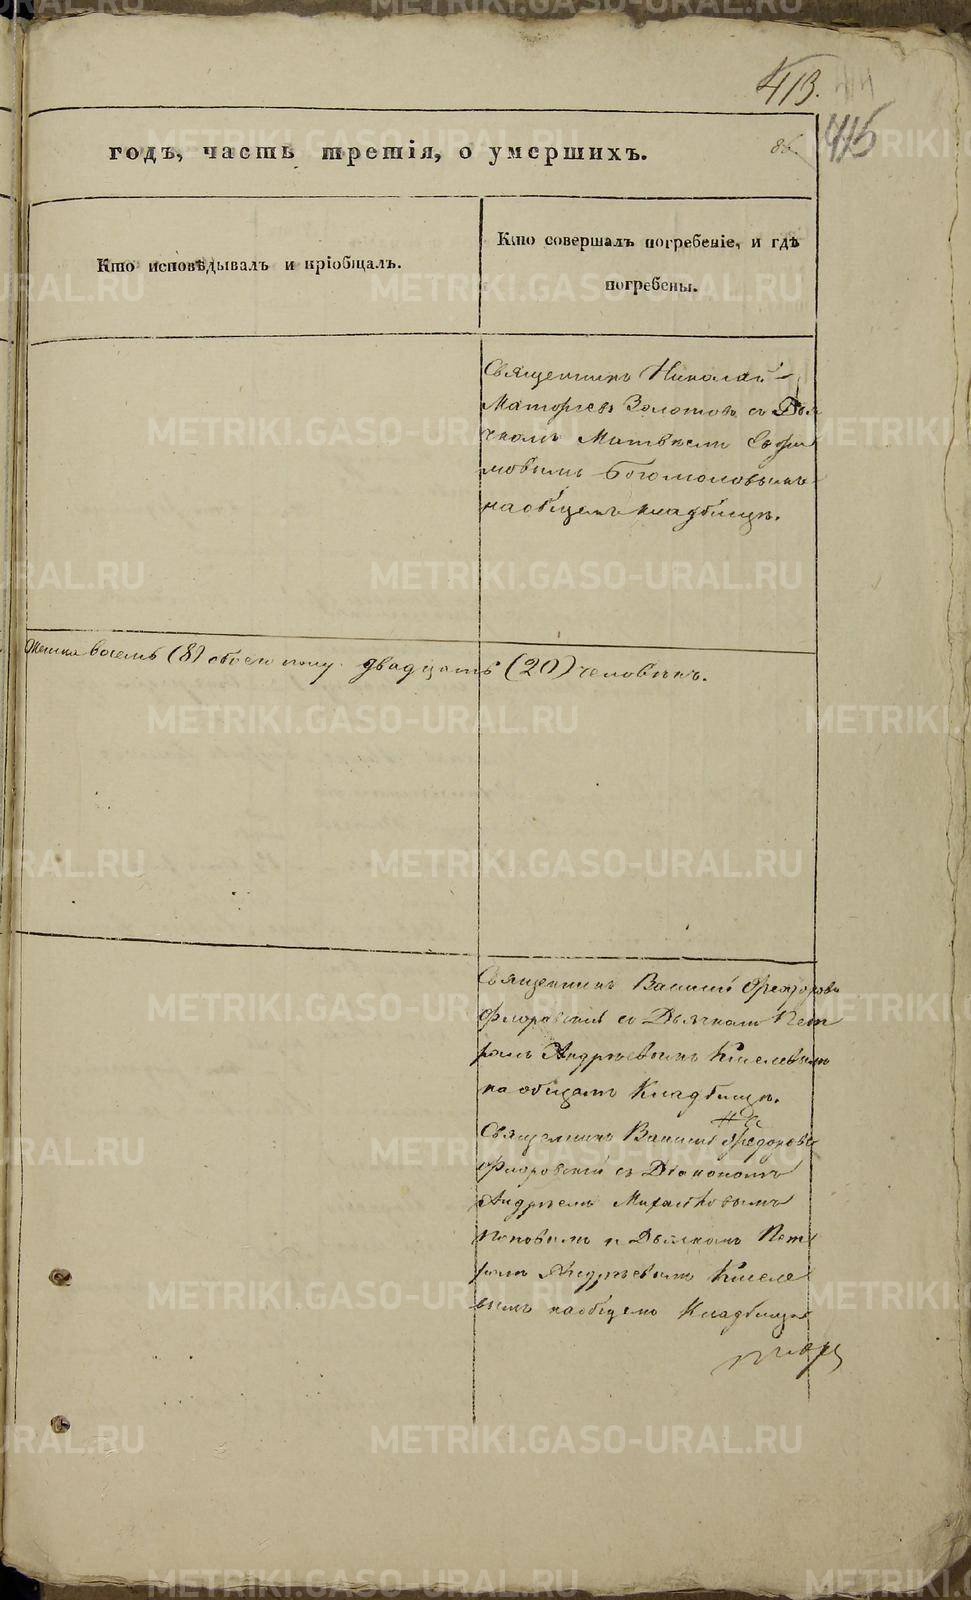 413.
415
86.
годъ, часть третія, о умершихъ.
Кто исповѣдывалъ и пріобщалъ.
Кто совершалъ погребеніе, и гдѣ
погребены.
Священникъ Николай
Матѳѣевъ Золотовъ съ Дья
чкомъ Матвѣемъ Ефи
мовымъ Богомоловымъ
на общемъ кладбищѣ.
Женска восемь (8) обоего полу двадцать (20) человѣкъ.
Священникъ Василій Ѳеодоровъ
Флоровскій съ Дьячкомъ Пет
ромъ Андреевымъ Киселевымъ
на общемъ Кладбищѣ.
Священникъ Василій Ѳеодоровъ
Флоровскій съ Діакономъ
Андреемъ Михайловымъ
Поповымъ и Дьячкомъ Пет
ромъ Андреевымъ Киселе
вымъ на общемъ Кладбищѣ
METRIKI.GASO-URAL.RU